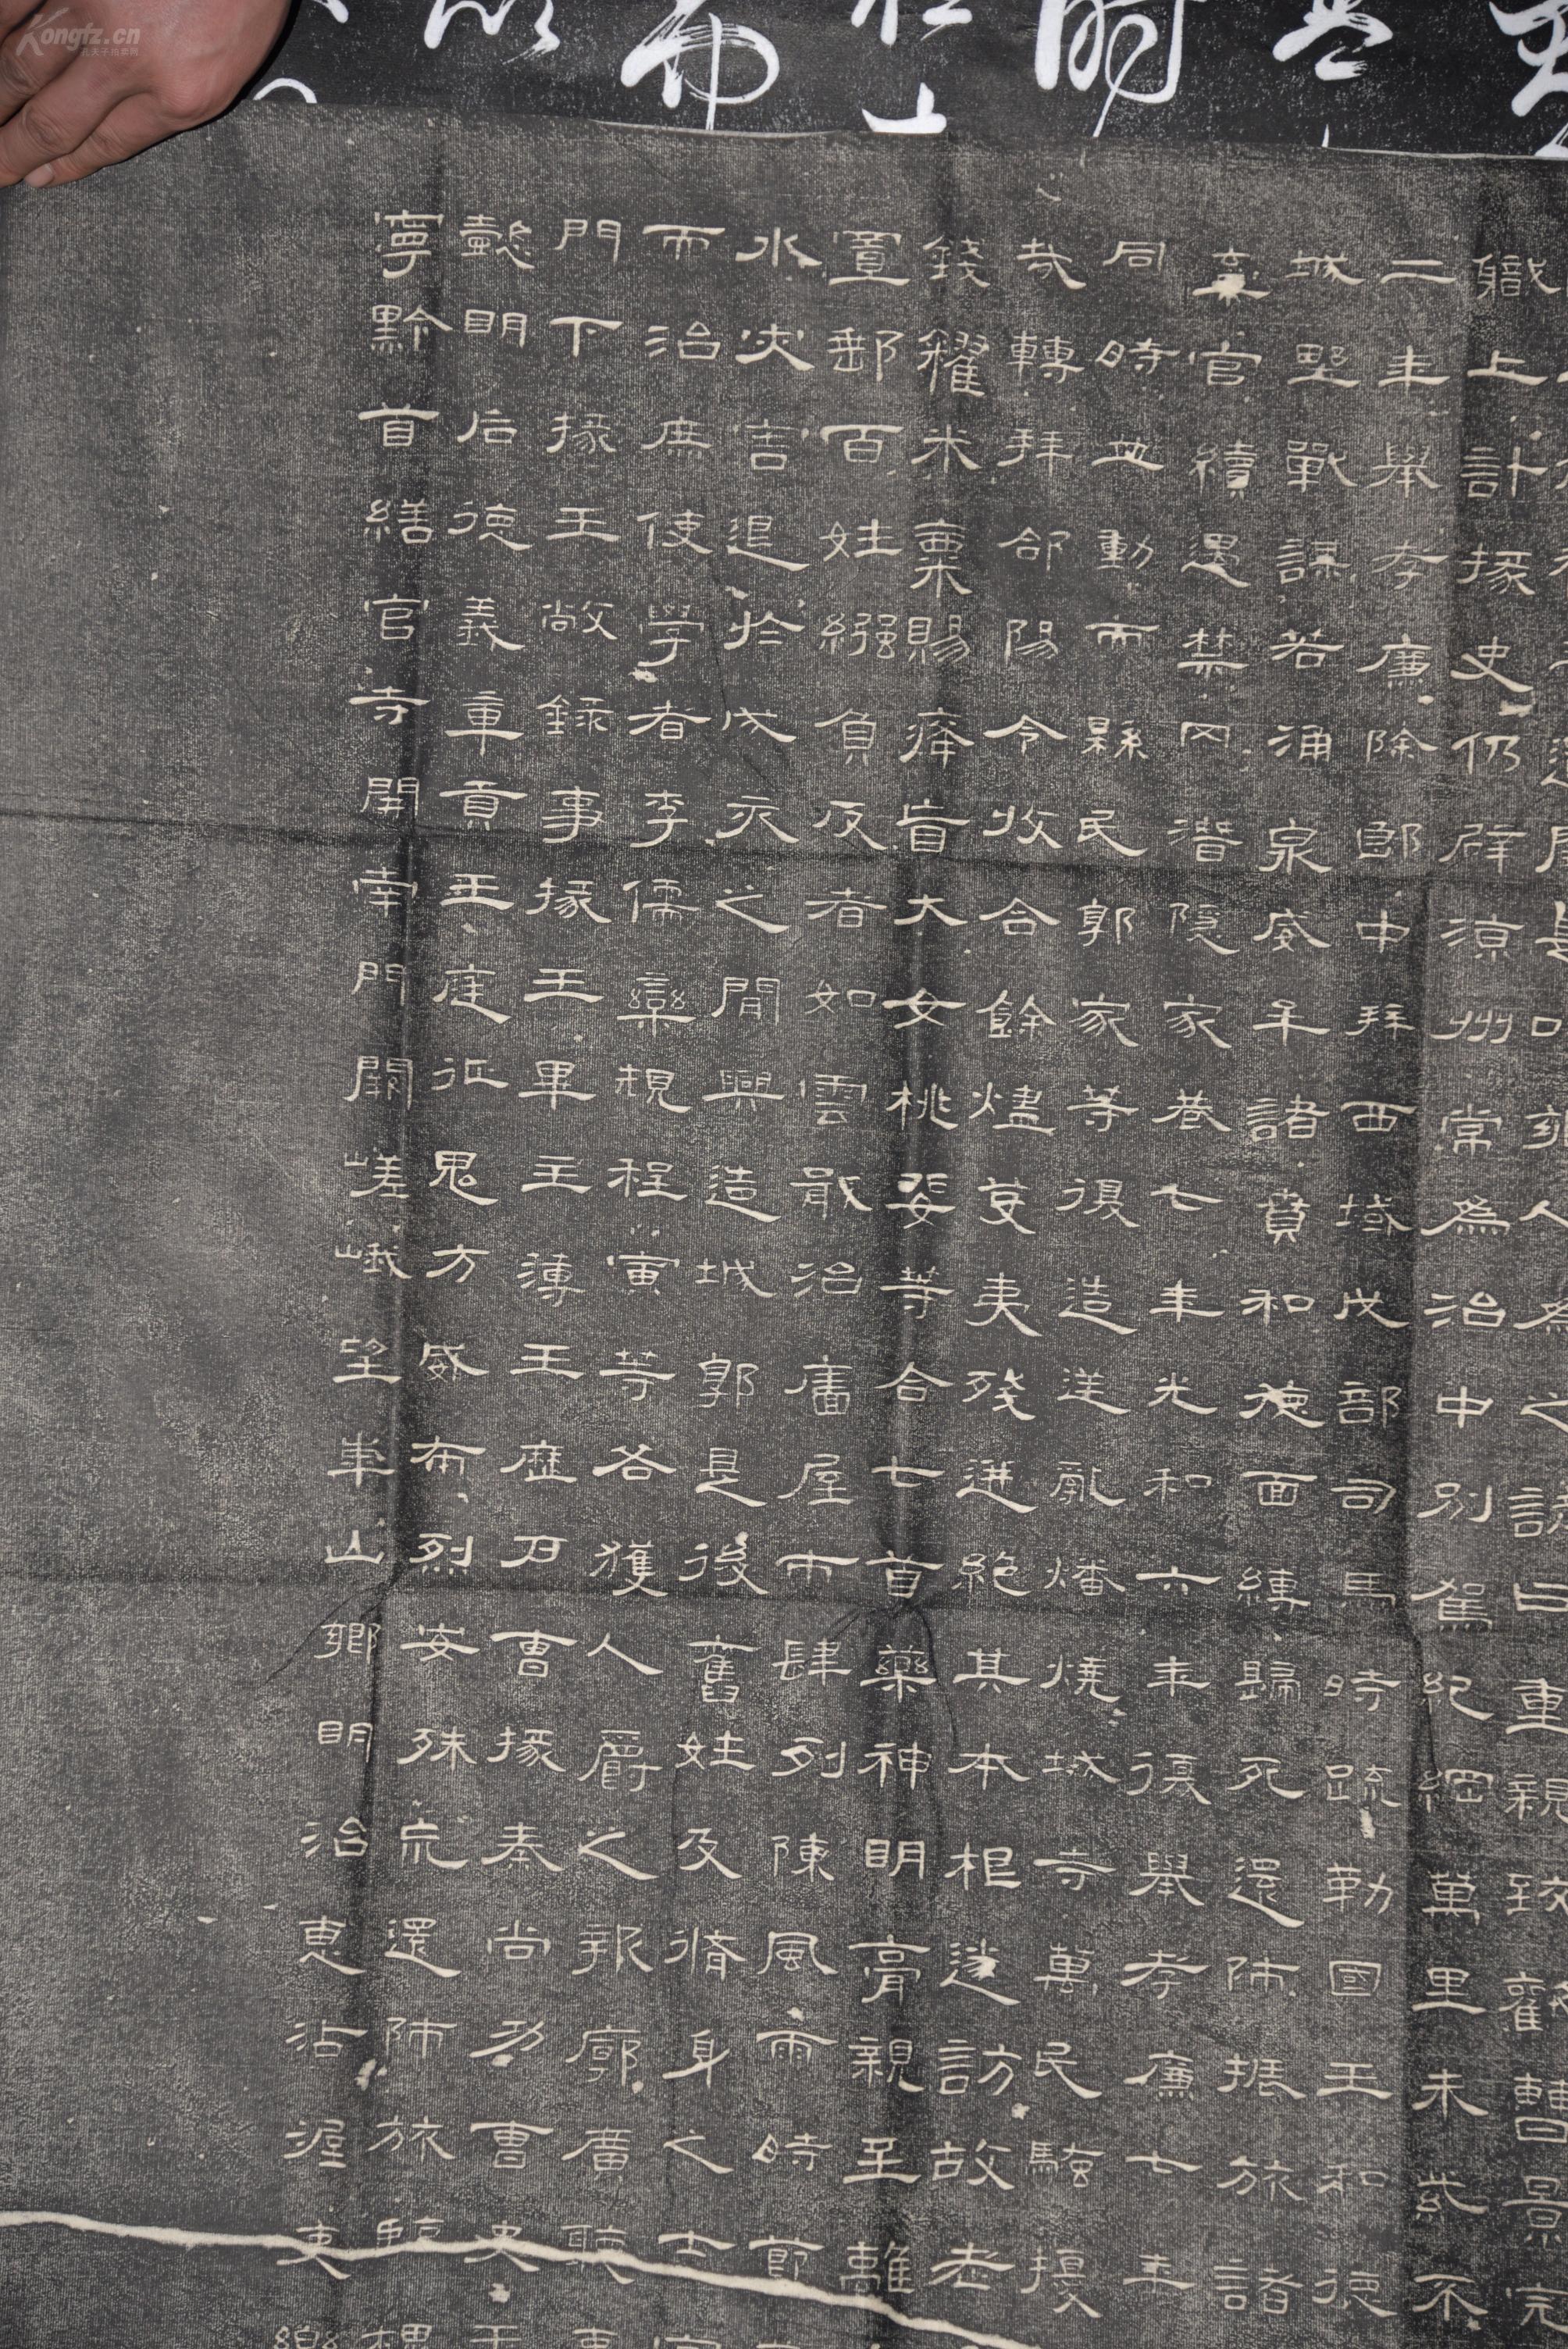 之諺曰重親致歡曹景完
職上計掾史仍辟涼州常為治中別駕紀綱萬里朱紫不
二年舉孝廉除郎中拜西域戊部司馬時疏勒國王和德
城野戰謀若涌泉威牟諸賁和德面縛歸死還師振旅諸
棄官續遇禁冈潛隱家巷七年光和六年復舉孝廉七年
同時並動而縣民郭家等復造逆亂燔燒城寺萬民騷擾
哉轉拜郃陽令收合餘燼芟夷殘迸絕其本根遂訪故老
錢糴米粟賜癃盲大女桃婓等合七首藥神明膏親至離
置郵百姓繈負反者如雲戢治廧屋市肆列陳風雨時節
水灾害退於戌亥之間興造城郭是後舊姓及脩身之士
而治庶使學者李儒欒規程寅等各獲人爵之報廓廣聽事
門下掾王敞錄事掾王畢主薄王歷户曹掾秦尚功曹史王
懿明后德義章貢王庭征鬼方威布烈安殊巟還師旅臨槐
寧黔首繕官寺開南門闕嵯峨望華山鄉明治惠沾渥吏樂
Kongfz.cn